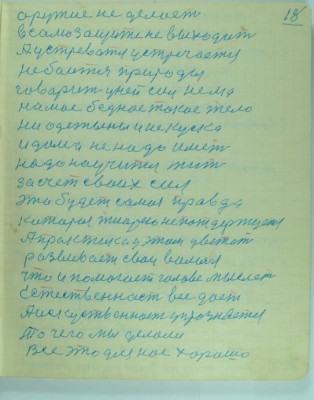 18
оружие не делает
в самозащите не выходит
А устреватя устречается
не баится природы
говорит уней сил нема
на мае бедное такое тело
ни одетыны и не куска
и дома не надо иметь
надо научится жит
за счет своих сил
это будет самая правда
катарая подержуется
А практика у этом цветет
развивает сваи
что и помогает голове мыслет
Естественност все дает
А искуственност упрозняется
То чего мы делали
Все это для нас хорошо